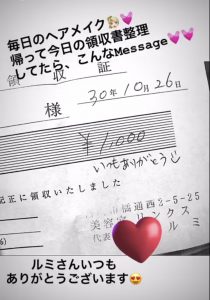 毎日のヘアメイク
帰って今日の領収書整理
してたら、こんなMessage
領収証
様 30年10月26日
¥1,000
いつもありがとう
記正に領収いたしました
通西2-5-25
美容室リンクス
代表 ルミ
ルミさんいつも
ありがとうございます